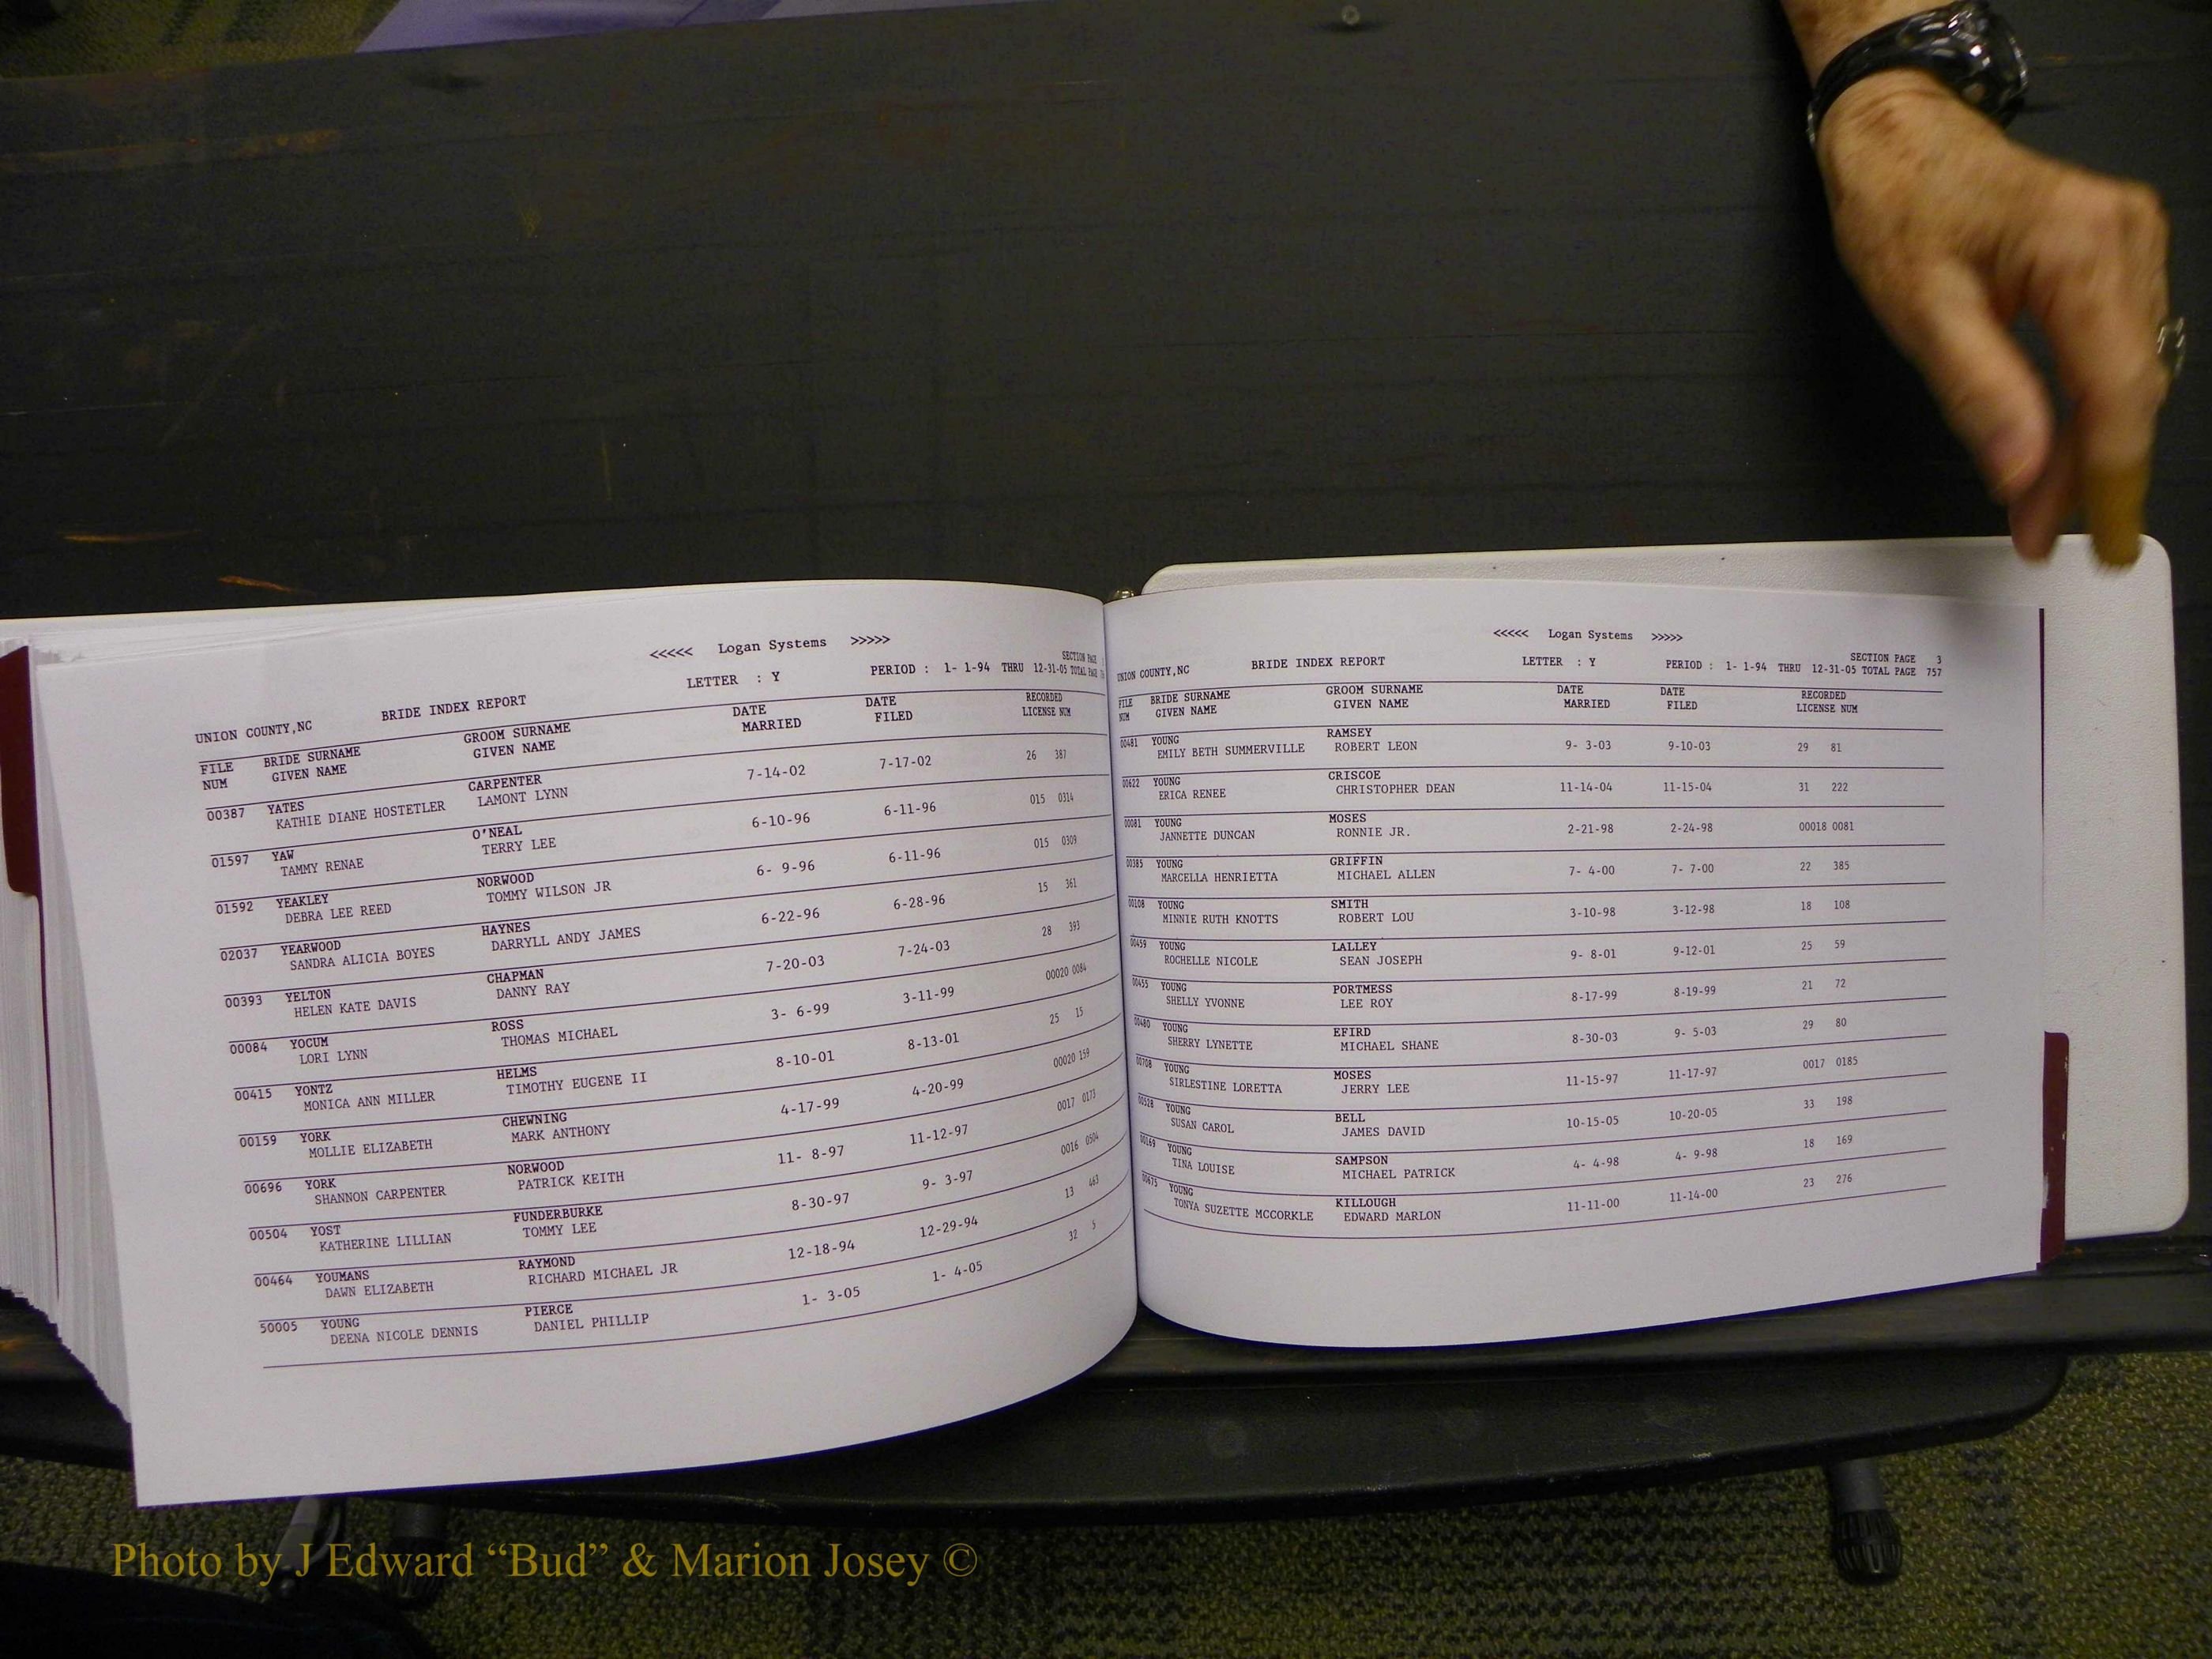 <<<<< Logan Systems >>>>>
SECTION PAGE
UNION COUNTY,NC BRIDE INDEX REPORT LETTER : Y PERIOD : 1- 1-94 THRU 12-31-05 TOTAL PAGE
FILE BRIDE SURNAME GROOM SURNAME DATE DATE RECORDED
NUM GIVEN NAME GIVEN NAME MARRIED FILED LICENSE NUM
00387 YATES CARPENTER 7-14-02 7-17-02 26 387
KATHIE DIANE HOSTETLER LAMONT LYNN
01597 YAW O'NEAL 6-10-96 6-11-96 015 0314
TAMMY RENAE TERRY LEE
01592 YEAKLEY NORWOOD 6- 9-96 6-11-96 015 0309
DEBRA LEE REED TOMMY WILSON JR
02037 YEARWOOD HAYNES 6-22-96 6-28-96 15 361
SANDRA ALICIA BOYES DARRYLL ANDY JAMES
00393 YELTON CHAPMAN 7-20-03 7-24-03 28 393
HELEN KATE DAVIS DANNY RAY
00084 YOCUM ROSS 3- 6-99 3-11-99 00020 0084
LORI LYNN THOMAS MICHAEL
00415 YONTZ HELMS 8-10-01 8-13-01 25 15
MONICA ANN MILLER TIMOTHY EUGENE II
00159 YORK CHEWNING 4-17-99 4-20-99 00020 159
MOLLIE ELIZABETH MARK ANTHONY
00696 YORK NORWOOD 11- 8-97 11-12-97 0017 0173
SHANNON CARPENTER PATRICK KEITH
00504 YOST FUNDERBURKE 8-30-97 9- 3-97 0016 0504
KATHERINE LILLIAN TOMMY LEE
00464 YOUMANS RAYMOND 12-18-94 12-29-94 13 463
DAWN ELIZABETH RICHARD MICHAEL JR
50005 YOUNG PIERCE 1- 3-05 1- 4-05 32 5
DEENA NICOLE DENNIS DANIEL PHILLIP
<<<<< Logan Systems >>>>>
SECTION PAGE 3
UNION COUNTY,NC BRIDE INDEX REPORT LETTER : Y PERIOD : 1- 1-94 THRU 12-31-05 TOTAL PAGE 757
FILE BRIDE SURNAME GROOM SURNAME DATE DATE RECORDED
NUM GIVEN NAME GIVEN NAME MARRIED FILED LICENSE NUM
00481 YOUNG RAMSEY 9- 3-03 9-10-03 29 81
EMILY BETH SUMMERVILLE ROBERT LEON
00622 YOUNG CRISCOE 11-14-04 11-15-04 31 222
ERICA RENEE CHRISTOPHER DEAN
00081 YOUNG MOSES 2-21-98 2-24-98 00018 0081
JANNETTE DUNCAN RONNIE JR.
00385 YOUNG GRIFFIN 7- 4-00 7- 7-00 22 385
MARCELLA HENRIETTA MICHAEL ALLEN
00108 YOUNG SMITH 3-10-98 3-12-98 18 108
MINNIE RUTH KNOTTS ROBERT LOU
00459 YOUNG LALLEY 9- 8-01 9-12-01 25 59
ROCHELLE NICOLE SEAN JOSEPH
00455 YOUNG PORTMESS 8-17-99 8-19-99 21 72
SHELLY YVONNE LEE ROY
00480 YOUNG EFIRD 8-30-03 9- 5-03 29 80
SHERRY LYNETTE MICHAEL SHANE
00708 YOUNG MOSES 11-15-97 11-17-97 0017 0185
SIRLESTINE LORETTA JERRY LEE
00528 YOUNG BELL 10-15-05 10-20-05 33 198
SUSAN CAROL JAMES DAVID
00169 YOUNG SAMPSON 4- 4-98 4- 9-98 18 169
TINA LOUISE MICHAEL PATRICK
00675 YOUNG KILLOUGH 11-11-00 11-14-00 23 276
TONYA SUZETTE MCCORKLE EDWARD MARLON
Photo by J Edward “Bud” & Marion Josey ©